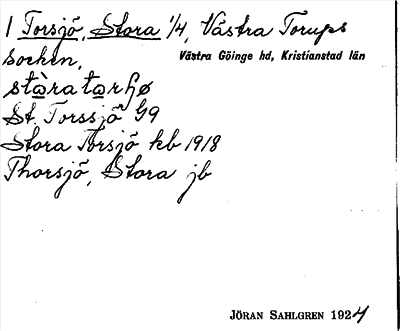 1 Torsjö, Stora 1/4, Västra Torups
socken, Västra Göinge hd, Kristianstad län
St. Torssjö G9
Stora Torsjö kb 1918
Thorsjö, Stora jb
JÖRAN SAHLGREN 1924